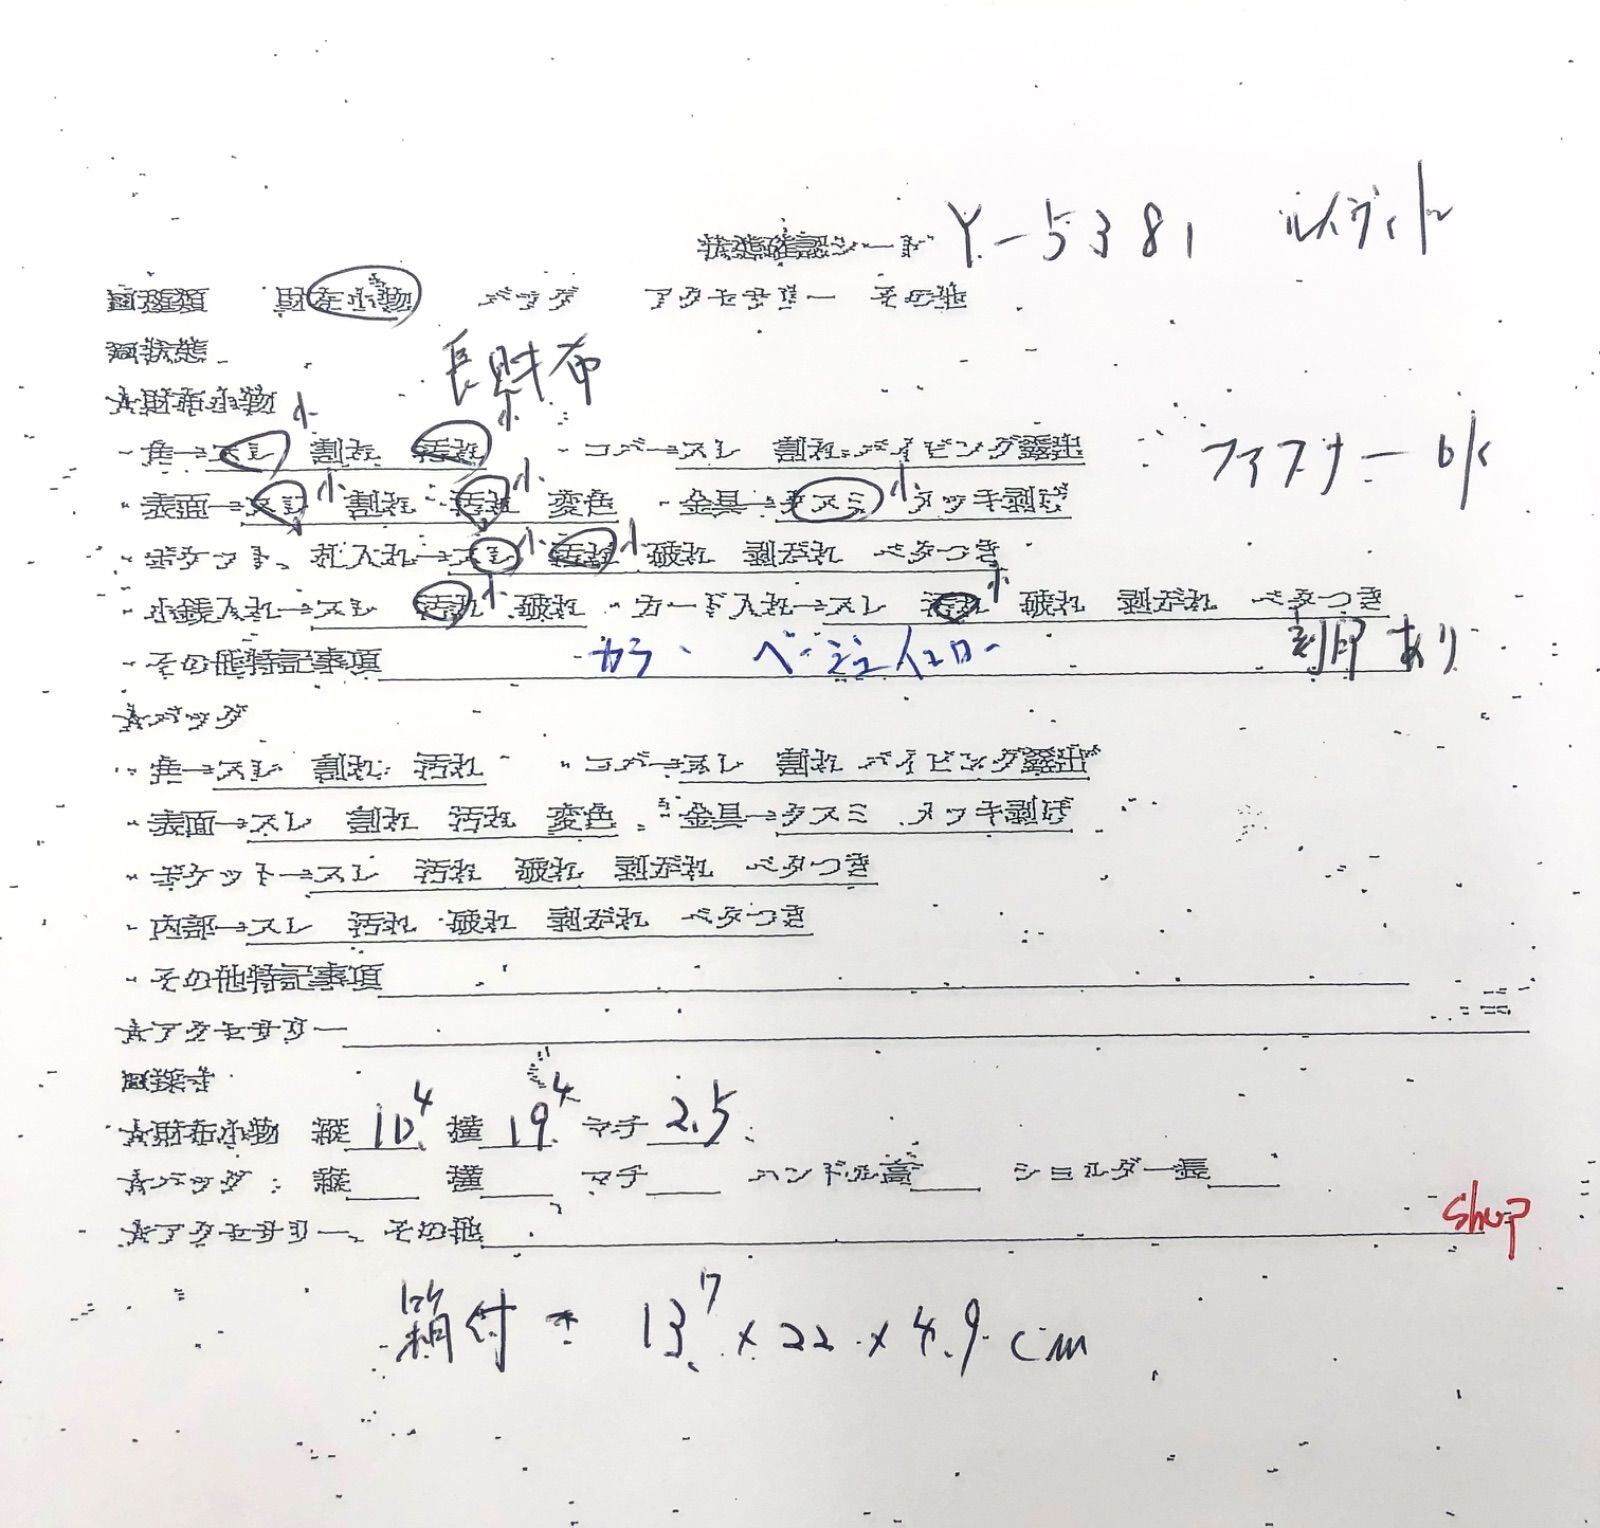 状態確認シート Y-5381 ルイヴィトン
□種類 財布小物 バッグ アクセサリー その他
□状態 長財布
☆財布小物
・角→スレ 小 割れ 汚れ 小 ・コバ→スレ 割れ パイピング露出 ファスナー OK
・表面→スレ 小 割れ 汚れ 小 変色 ・金具→クスミ 小 メッキ剥げ
・ポケット、札入れ→スレ 小 汚れ 小 破れ 剥がれ ベタつき
・小銭入れ→スレ 汚れ 小 破れ ・カード入れ→スレ 汚れ 小 破れ 剥がれ ベタつき
・その他特記事項 カラー 刻印あり
☆バッグ
・角→スレ 割れ 汚れ ・コバ→スレ 割れ パイピング露出
・表面→スレ 割れ 汚れ 変色 ・金具→クスミ メッキ剥げ
・ポケット→スレ 汚れ 破れ 剥がれ ベタつき
・内部→スレ 汚れ 破れ 剥がれ ベタつき
・その他特記事項
☆アクセサリー
□採寸
☆財布小物 縦 10.4 横 19.4 マチ 2.5
☆バッグ 縦 横 マチ ハンドル高 ショルダー長
☆アクセサリー、その他
shop
箱付 13.7 × 22 × 4.9 cm